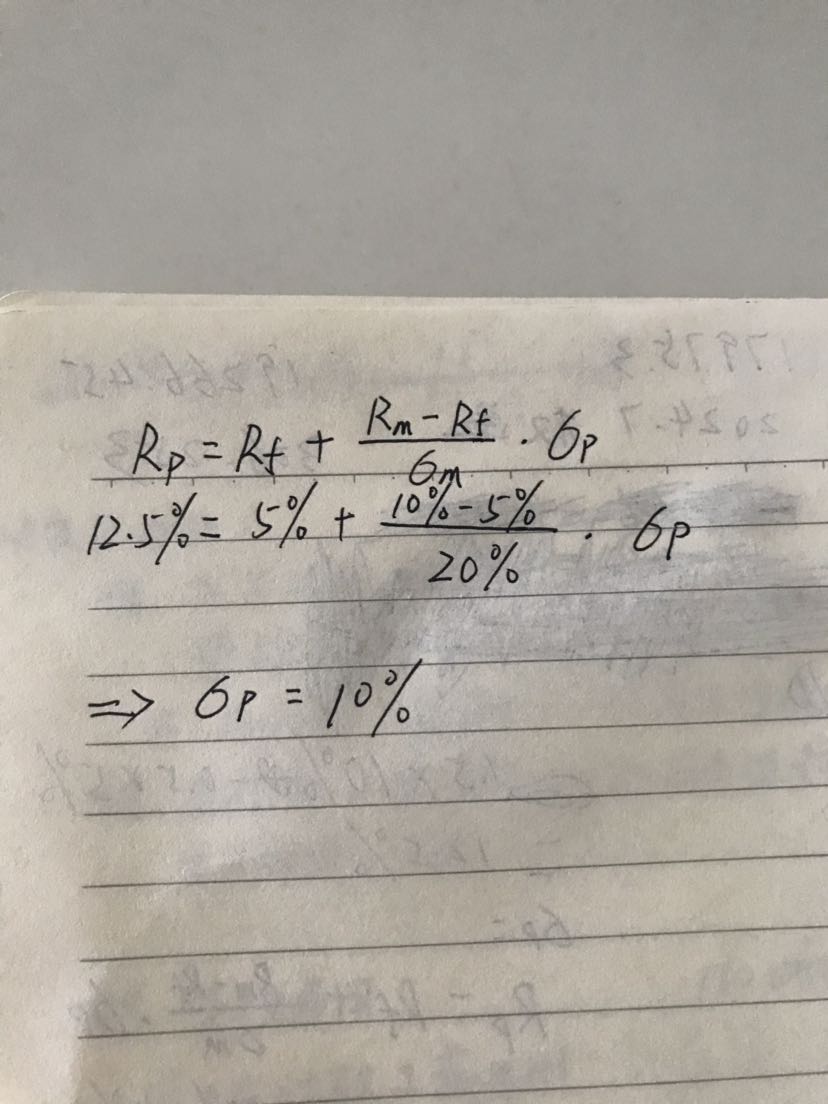 Rp = Rf + (Rm - Rf)/σm · σp
12.5% = 5% + (10% - 5%)/20% · σp
⇒ σp = 10%